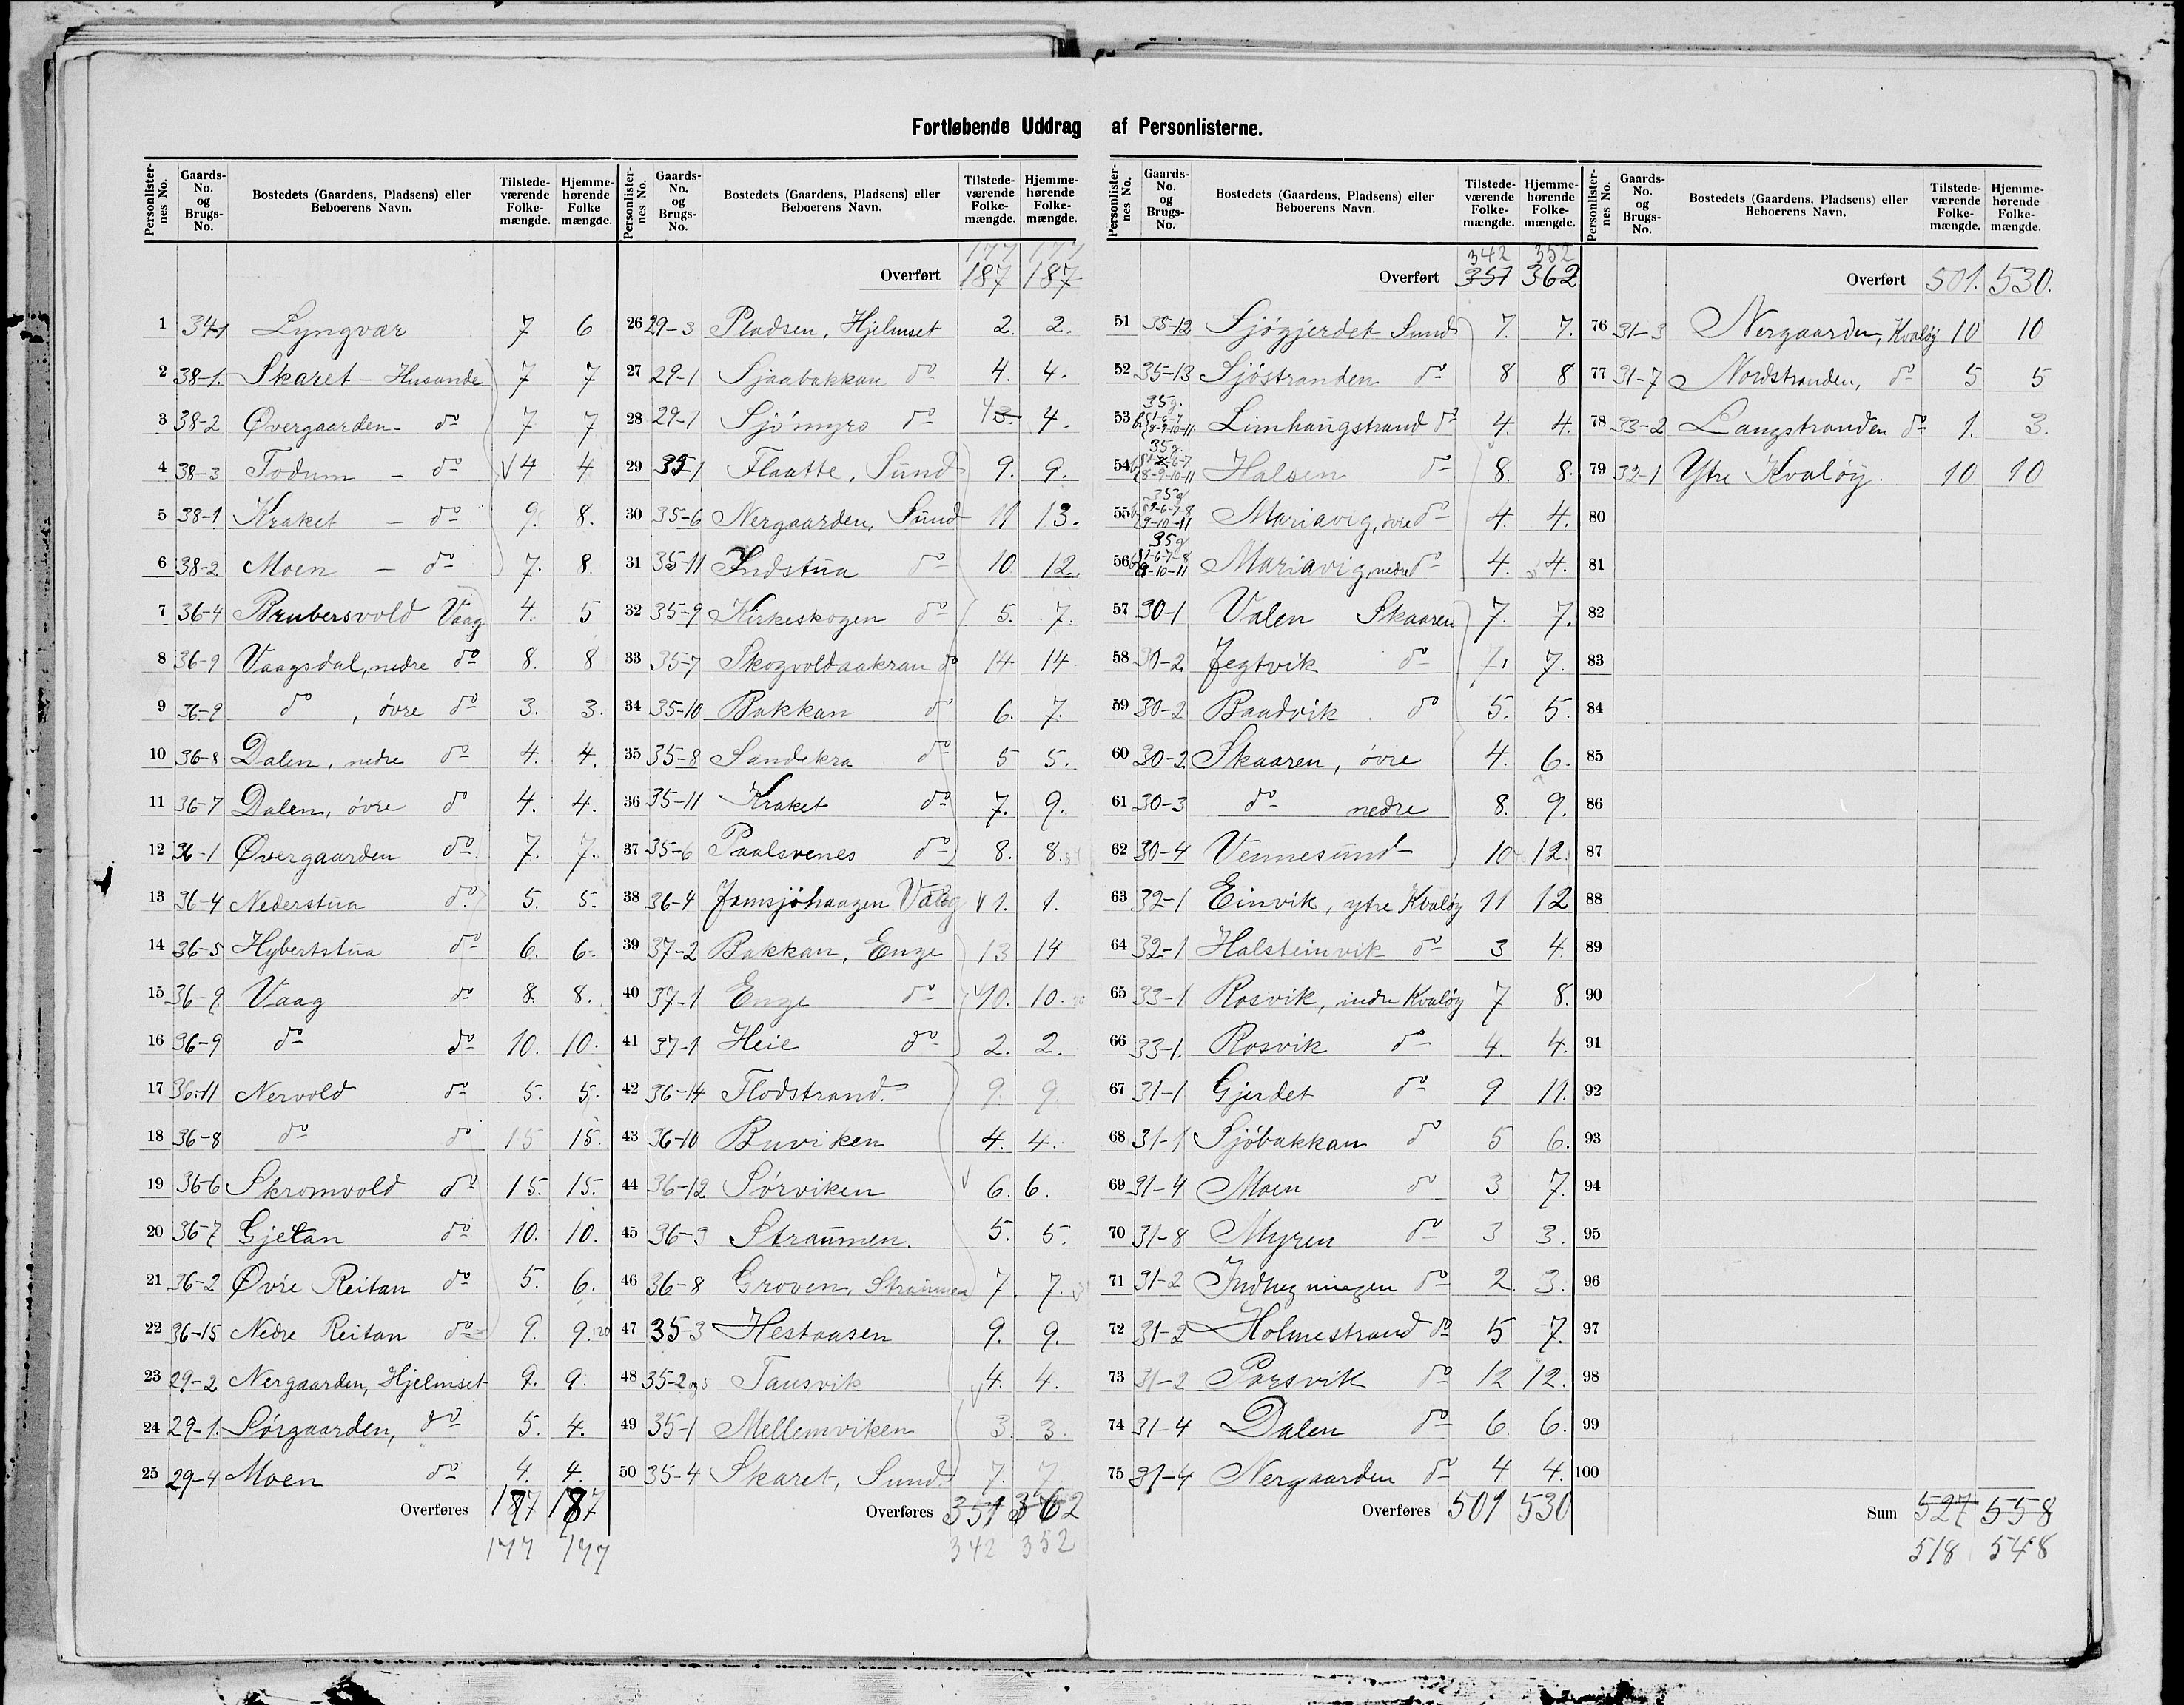 Fortløbende Uddrag af Personlisterne.
Personlisternes No. Gaards-No. og Brugs-No. Bostedets (Gaardens, Pladsens) eller Beboerens Navn. Tilstedeværende Folkemængde. Hjemmehørende Folkemængde.
1 34-1 Lyngvær 7 6
2 38-1. Skaret - Husande 7 7
3 38-2 Øvergaarden - do 7 7
4 38-3 Todum - do √4 4
5 38-1 Kraket - do 9. 8.
6 38-2 Moen - do 7. 8.
7 36-4 Brubersvold Vaag 4. 5
8 36-9 Vaagsdal, nedre do 8. 8
9 36-9 do, övre do 3. 3.
10 36-8 Dalen, nedre do 4. 4.
11 36-7 Dalen, övre do 4. 4.
12 36-1 Øvergaarden do 7. 7.
13 36-4 Nederstua do 5. 5.
14 36-5 Hybertstua do 6. 6.
15 36-9 Vaag do 8. 8.
16 36-9 do do 10. 10.
17 36-11 Nervold do 5. 5.
18 36-8 do do 15 15.
19 36-6 Skromvold do 15. 15.
20 36-7 Gjetan do 10. 10.
21 36-2 Øvre Reitan do 5. 6.
22 36-15 Nedre Reitan do 9. 9.
23 29-2 Nergaarden, Hjelmset 9. 9.
24 29-1. Sørgaarden, do 5. 4.
25 29-4 Moen do 4. 4.
Overføres 187 187
177 177
Personlisternes No. Gaards-No. og Brugs-No. Bostedets (Gaardens, Pladsens) eller Beboerens Navn. Tilstedeværende Folkemængde. Hjemmehørende Folkemængde.
177 177
Overført 187 187
26 29-3 Pladsen, Hjelmset 2. 2.
27 29-1 Sjaabakkan do 4. 4.
28 29-1 Sjömyro do 4 3. 4.
29 35-1 Flaatte, Sund 9. 9.
30 35-6 Nergaarden, Sund 11 13.
31 35-11 Indstua do 10 12.
32 35-9 Kirkeskogen do 5. 7.
33 35-7 Skogvoldaakran do 14 14
34 35-10 Bakkan do 6. 7.
35 35-8 Sandekra do 5 5.
36 35-11 Kraket do 7. 9.
37 35-6 Paalsvenes do 8. 8.
38 36-4 Jamsjöhaagen Vaag √1. 1.
39 37-2 Bakkan, Enge 13 14
40 37-1 Enge do √10. 10.
41 37-1 Heie do 2. 2.
42 36-14 Flodstrand. 9. 9.
43 36-10 Buviken 4. 4.
44 36-12 Sörviken √ 6. 6.
45 36-3 Straumen. 5. 5.
46 36-8 Groven, Straumen 7. 7.
47 35-3 Hestaasen 9. 9.
48 35-2 og 5 Tausvik √4. 4.
49 35-1 Mellemviken 3. 3.
50 35-4 Skaret, Sund. 7. 7.
Overføres 351 362
342 352
Personlisternes No. Gaards-No. og Brugs-No. Bostedets (Gaardens, Pladsens) eller Beboerens Navn. Tilstedeværende Folkemængde. Hjemmehørende Folkemængde.
342 352
Overført 351 362
51 35-12 Sjøgjerdet Sund 7. 7.
52 35-13 Sjöstranden do 8 8
53 35 g. Limhaugstrand do 4. 4.
54 35 g. Halsen do 8. 8.
55 35 g Mariavig, övre do 4. 4.
56 35 g Mariavig, nedre do 4. 4.
57 30-1 Valen Skaaren 7. 7.
58 30-2 Jegtvik do 7. 7.
59 30-2 Baadvik do 5. 5.
60 30-2 Skaaren, övre 4. 6.
61 30-3 do nedre 8. 9.
62 30-4 Vennesund 10 12.
63 32-1 Einvik, ytre Kvaløy 11 12
64 32-1 Halsteinvik do 3 4.
65 33-1 Rosvik, indre Kvaløy 7 8.
66 33-1. Rosvik do 4. 4.
67 31-1 Gjerdet do 9 11.
68 31-1 Sjöbakkan do 5 6.
69 31-4 Moen do 3 7.
70 31-8 Myren do 3 3.
71 31-2 Indhegningen do 2. 3.
72 31-2 Holmestrand do 5 7.
73 31-2 Porsvik do 12 12.
74 31-4 Dalen do 6 6.
75 31-4 Nergaarden do 4. 4.
Overføres 501 530
Personlisternes No. Gaards-No. og Brugs-No. Bostedets (Gaardens, Pladsens) eller Beboerens Navn. Tilstedeværende Folkemængde. Hjemmehørende Folkemængde.
Overført 501. 530.
76 31-3 Nergaarden, Kvaløy 10 10
77 31-7 Nordstranden, do 5 5
78 33-2 Langstranden do 1. 3.
79 32-1 Ytre Kvaløy. 10 10
80
81
82
83
84
85
86
87
88
89
90
91
92
93
94
95
96
97
98
99
100
Sum 527 558
518 548